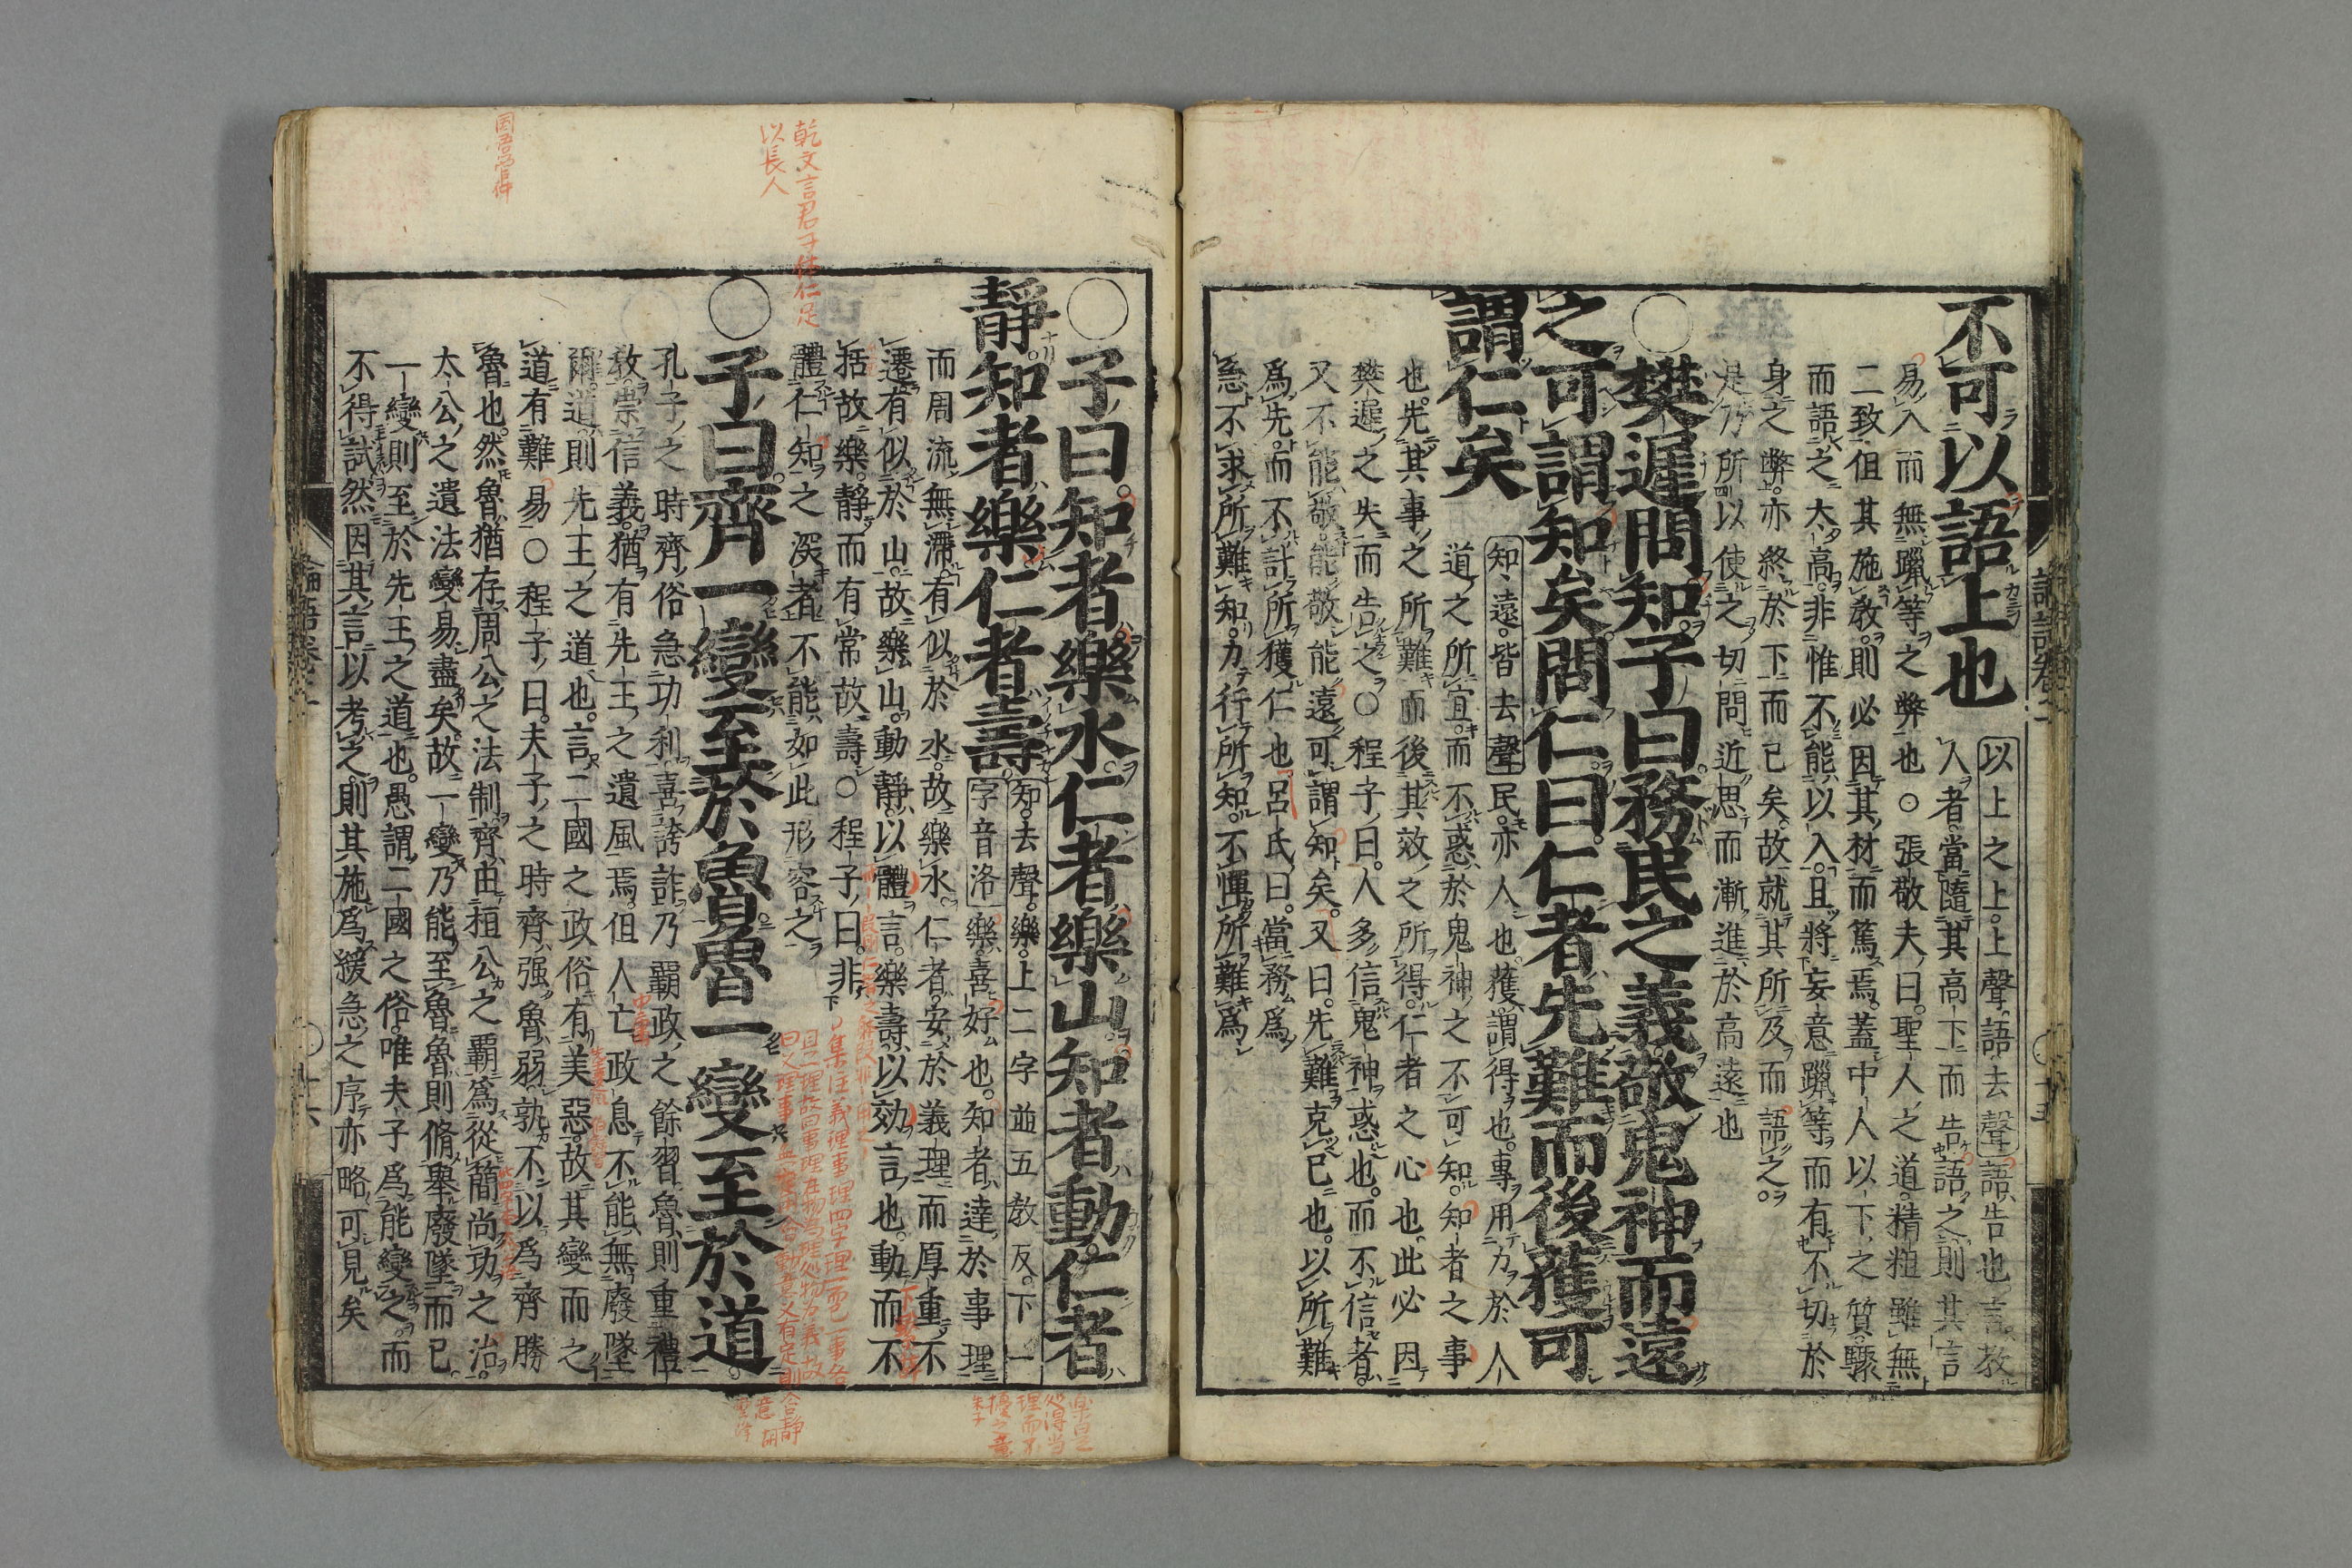 不可以語上也
以上之上。上聲。語去聲
語。告也。言。教
人者。當隨其高下而告語之則其言
易入而無躐等之弊也○張敬夫曰。聖人之道。精粗雖無
二致。但其施教。則必因其材而篤焉。蓋中人以下之質。驟
而語之太高。非惟不能以入。且將妄意躐等。而有不切於
身之弊。亦終於下而已矣。故就其所及而語之。
是乃所以使之切問近思而漸進於高遠也
○樊遲問知子曰務民之義敬鬼神而遠
之可謂知矣問仁曰仁者先難而後獲可
謂仁矣
知遠。皆去聲
民。亦人也。獲。謂得也。專用力於人
道之所宜。而不惑於鬼神之不可知。知者之事
也。先其事之所難而後其效之所得。仁者之心也。此必因
樊遲之失而告之○程子曰。人多信鬼神惑也。而不信者。
又不能敬。能敬能遠。可謂知矣。又曰。先難克己也。以所難
爲先。而不計所獲仁也。呂氏曰。當務爲
急不求所難知。力行所知。不憚所難爲
論語卷二
○子曰。知者樂水。仁者樂山知者動仁者
靜知者樂仁者壽。
知。去聲。樂。上二字並五教反。下一
字音洛
樂。喜好也。知者。達於事理
而周流無滯。有似於水。故樂水。仁者。安於義理而厚重不
遷。有似於山。故樂山。動靜。以體言。樂壽。以効言也。動而不
括故樂。靜而有常故壽○程子曰。非
體仁知之深者不能如此形容之
○子曰。齊一變至於魯魯一變至於道。
孔子之時齊俗急功利喜誇詐乃霸政之餘習。魯則重禮
教。崇信義。猶有先王之遺風焉。但人亡政息。不能無廢墜
爾。道則先王之道也。言二國之政俗有美惡。故其變而之
道有難易○程子曰。夫子之時齊強魯弱。孰不以爲齊勝
魯也。然魯猶存周公之法制。齊由桓公之霸爲從簡尚功之治。
太公之遺法變易盡矣。故一變乃能至魯。魯則脩擧廢墜而已。
一變則至於先王之道也。愚謂二國之俗。唯夫子爲能變之。而
不得試。然因其言以考之則其施爲緩急之序亦略可見矣
論語卷二
乾文言君子体仁足
以長人